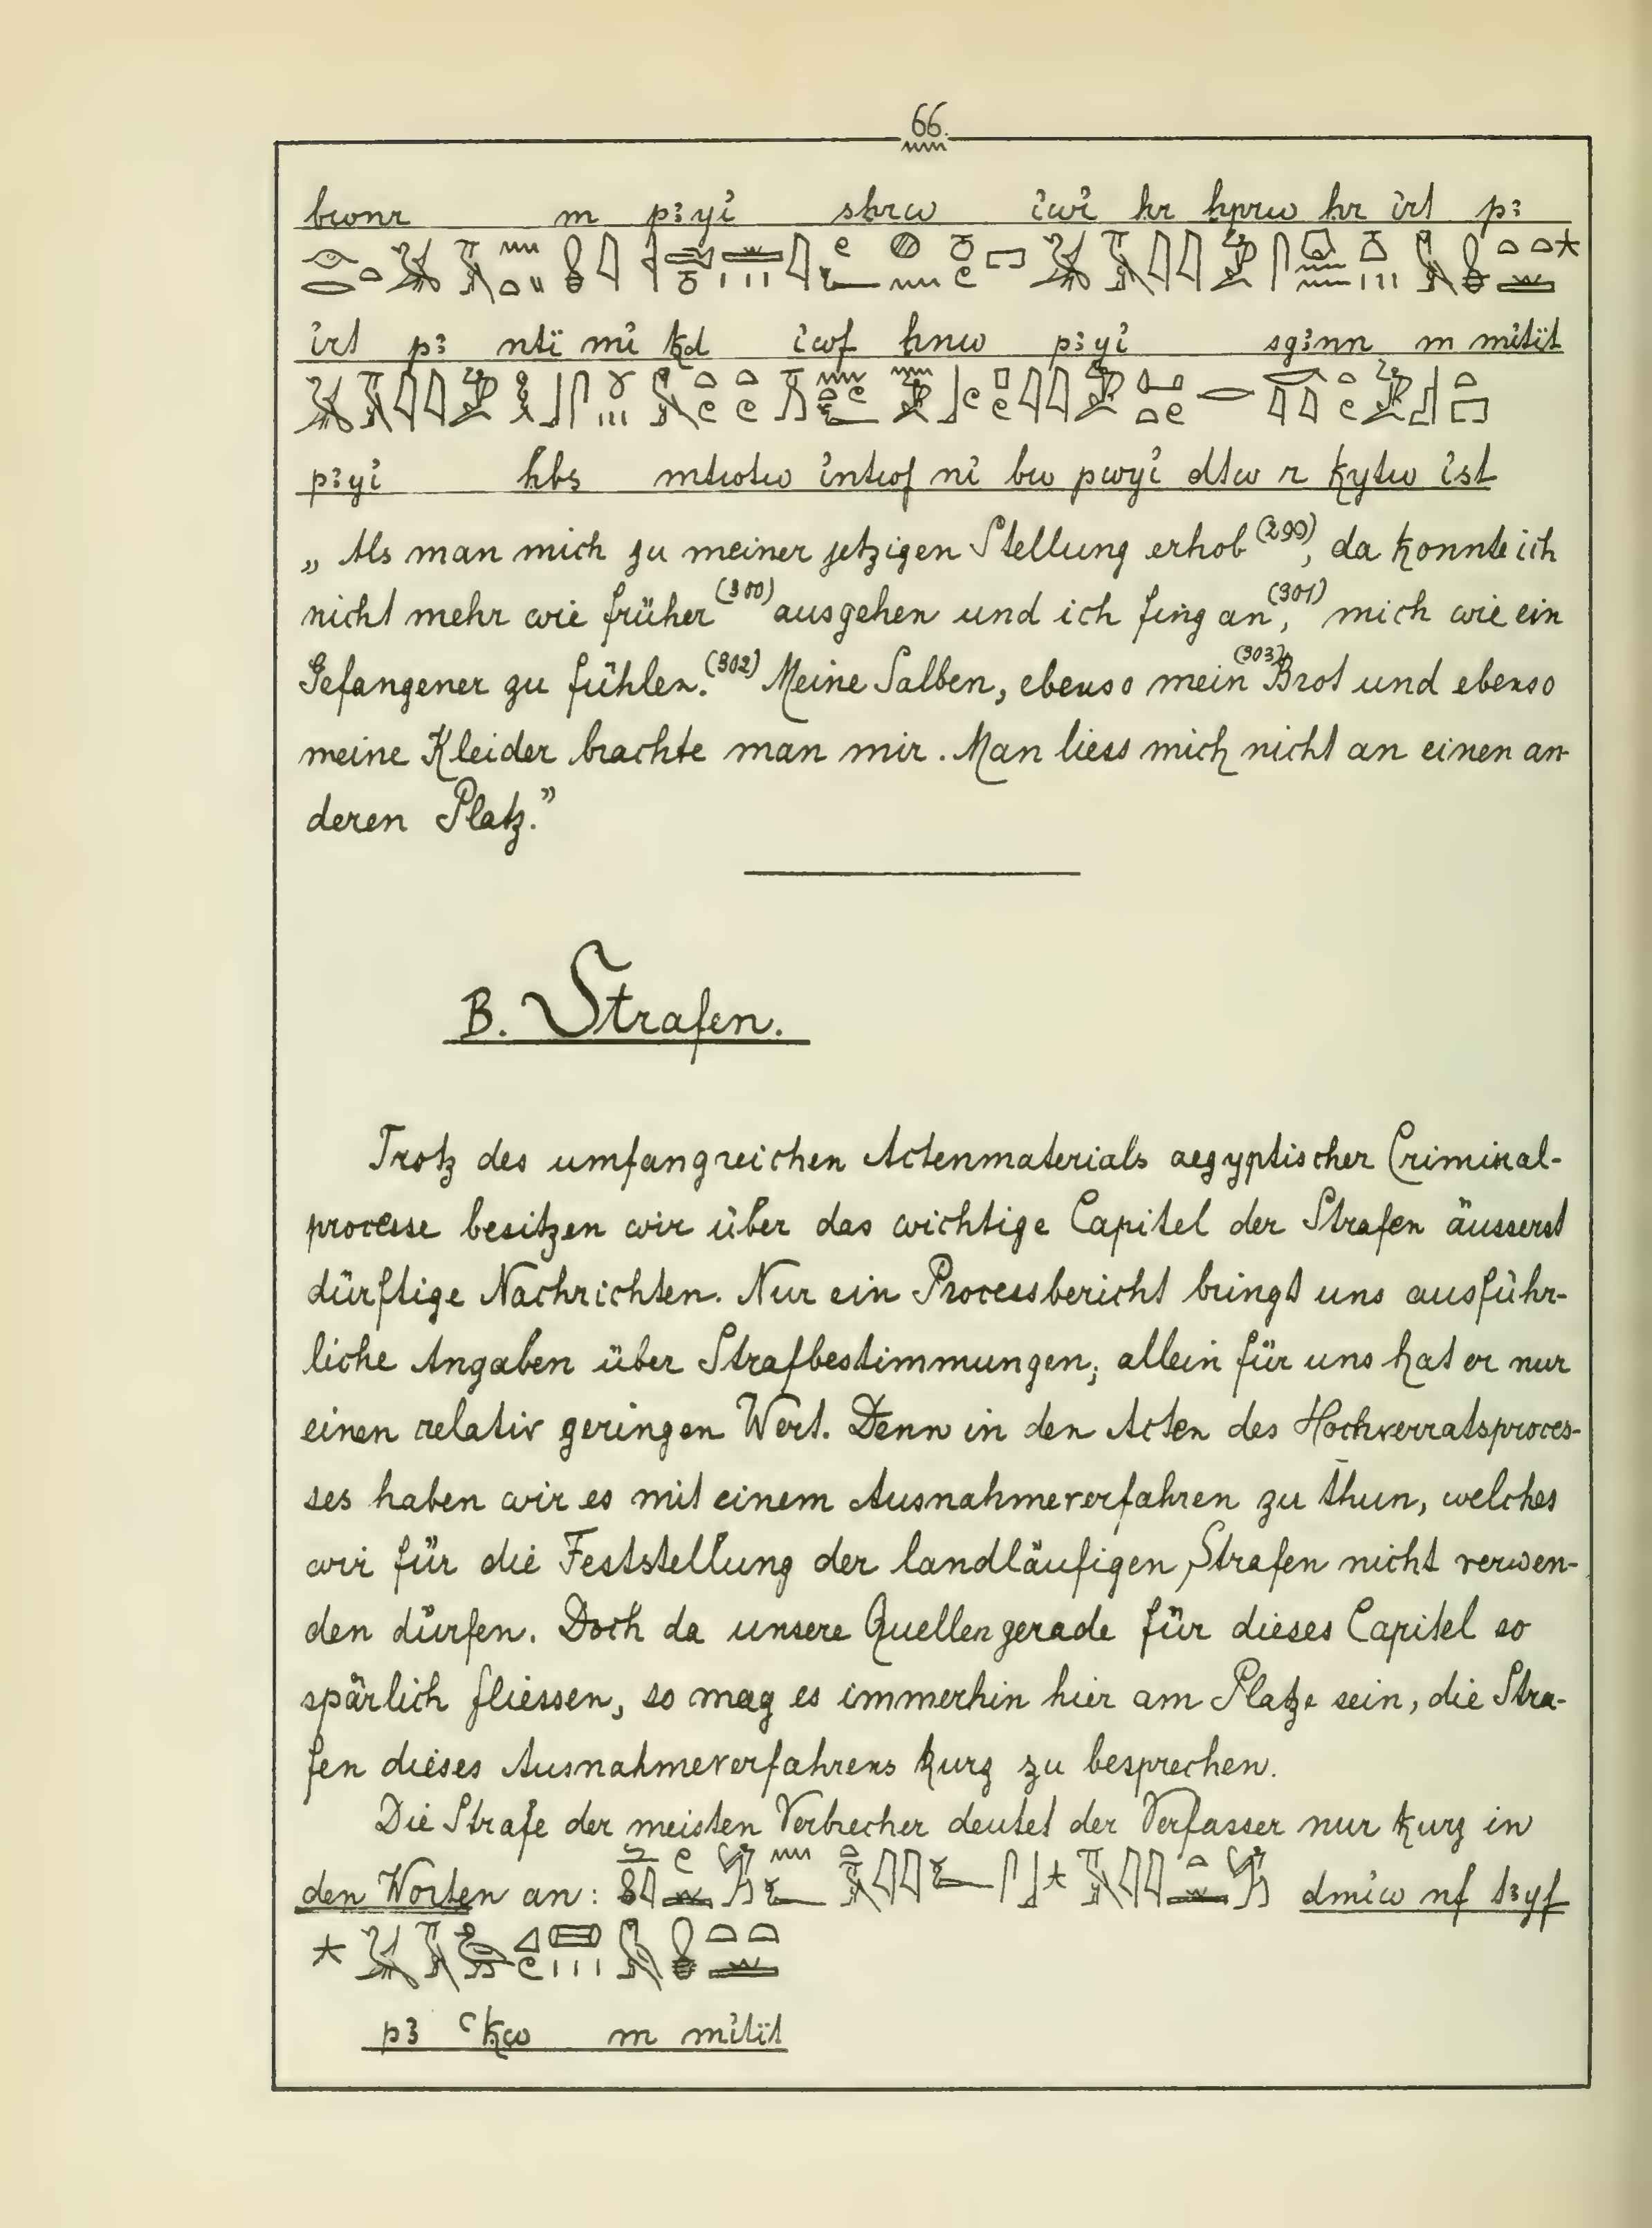 66.
bwnr m pꜣyỉ sḫrw ỉwỉ ḥr ḫprw ḥr ỉrt pꜣ
ỉrt pꜣ ntï mỉ ḳd ỉwf ḥnw pꜣyỉ sgꜣnn m mỉtït
pꜣyỉ ḥbs mtwtw ỉntwf nỉ bw pwyỉ dtw r ḳytw ỉst
„ Als man mich zu meiner jetzigen Stellung erhob (299), da konnte ich
nicht mehr wie früher (300) ausgehen und ich fing an, (301) mich wie ein
Gefangener zu fühlen. (302) Meine Salben, ebenso mein (303) Brot und ebenso
meine Kleider brachte man mir. Man liess mich nicht an einen an-
deren Platz.”
B. Strafen.
Trotz des umfangreichen Actenmaterials aegyptischer Criminal-
processe besitzen wir über das wichtige Capitel der Strafen äusserst
dürftige Nachrichten. Nur ein Processbericht bringt uns ausführ-
liche Angaben über Strafbestimmungen; allein für uns hat er nur
einen relativ geringen Wert. Denn in den Acten des Hochverratsproces-
ses haben wir es mit einem Ausnahmeverfahren zu thun, welches
wir für die Feststellung der landläufigen Strafen nicht verwen-
den dürfen. Doch da unsere Quellen gerade für dieses Capitel so
spärlich fliessen, so mag es immerhin hier am Platze sein, die Stra-
fen dieses Ausnahmeverfahrens kurz zu besprechen.
Die Strafe der meisten Verbrecher deutet der Verfasser nur kurz in
den Worten an: dmỉw nf tꜣyf
pꜣ ꜥḳw m mỉtït